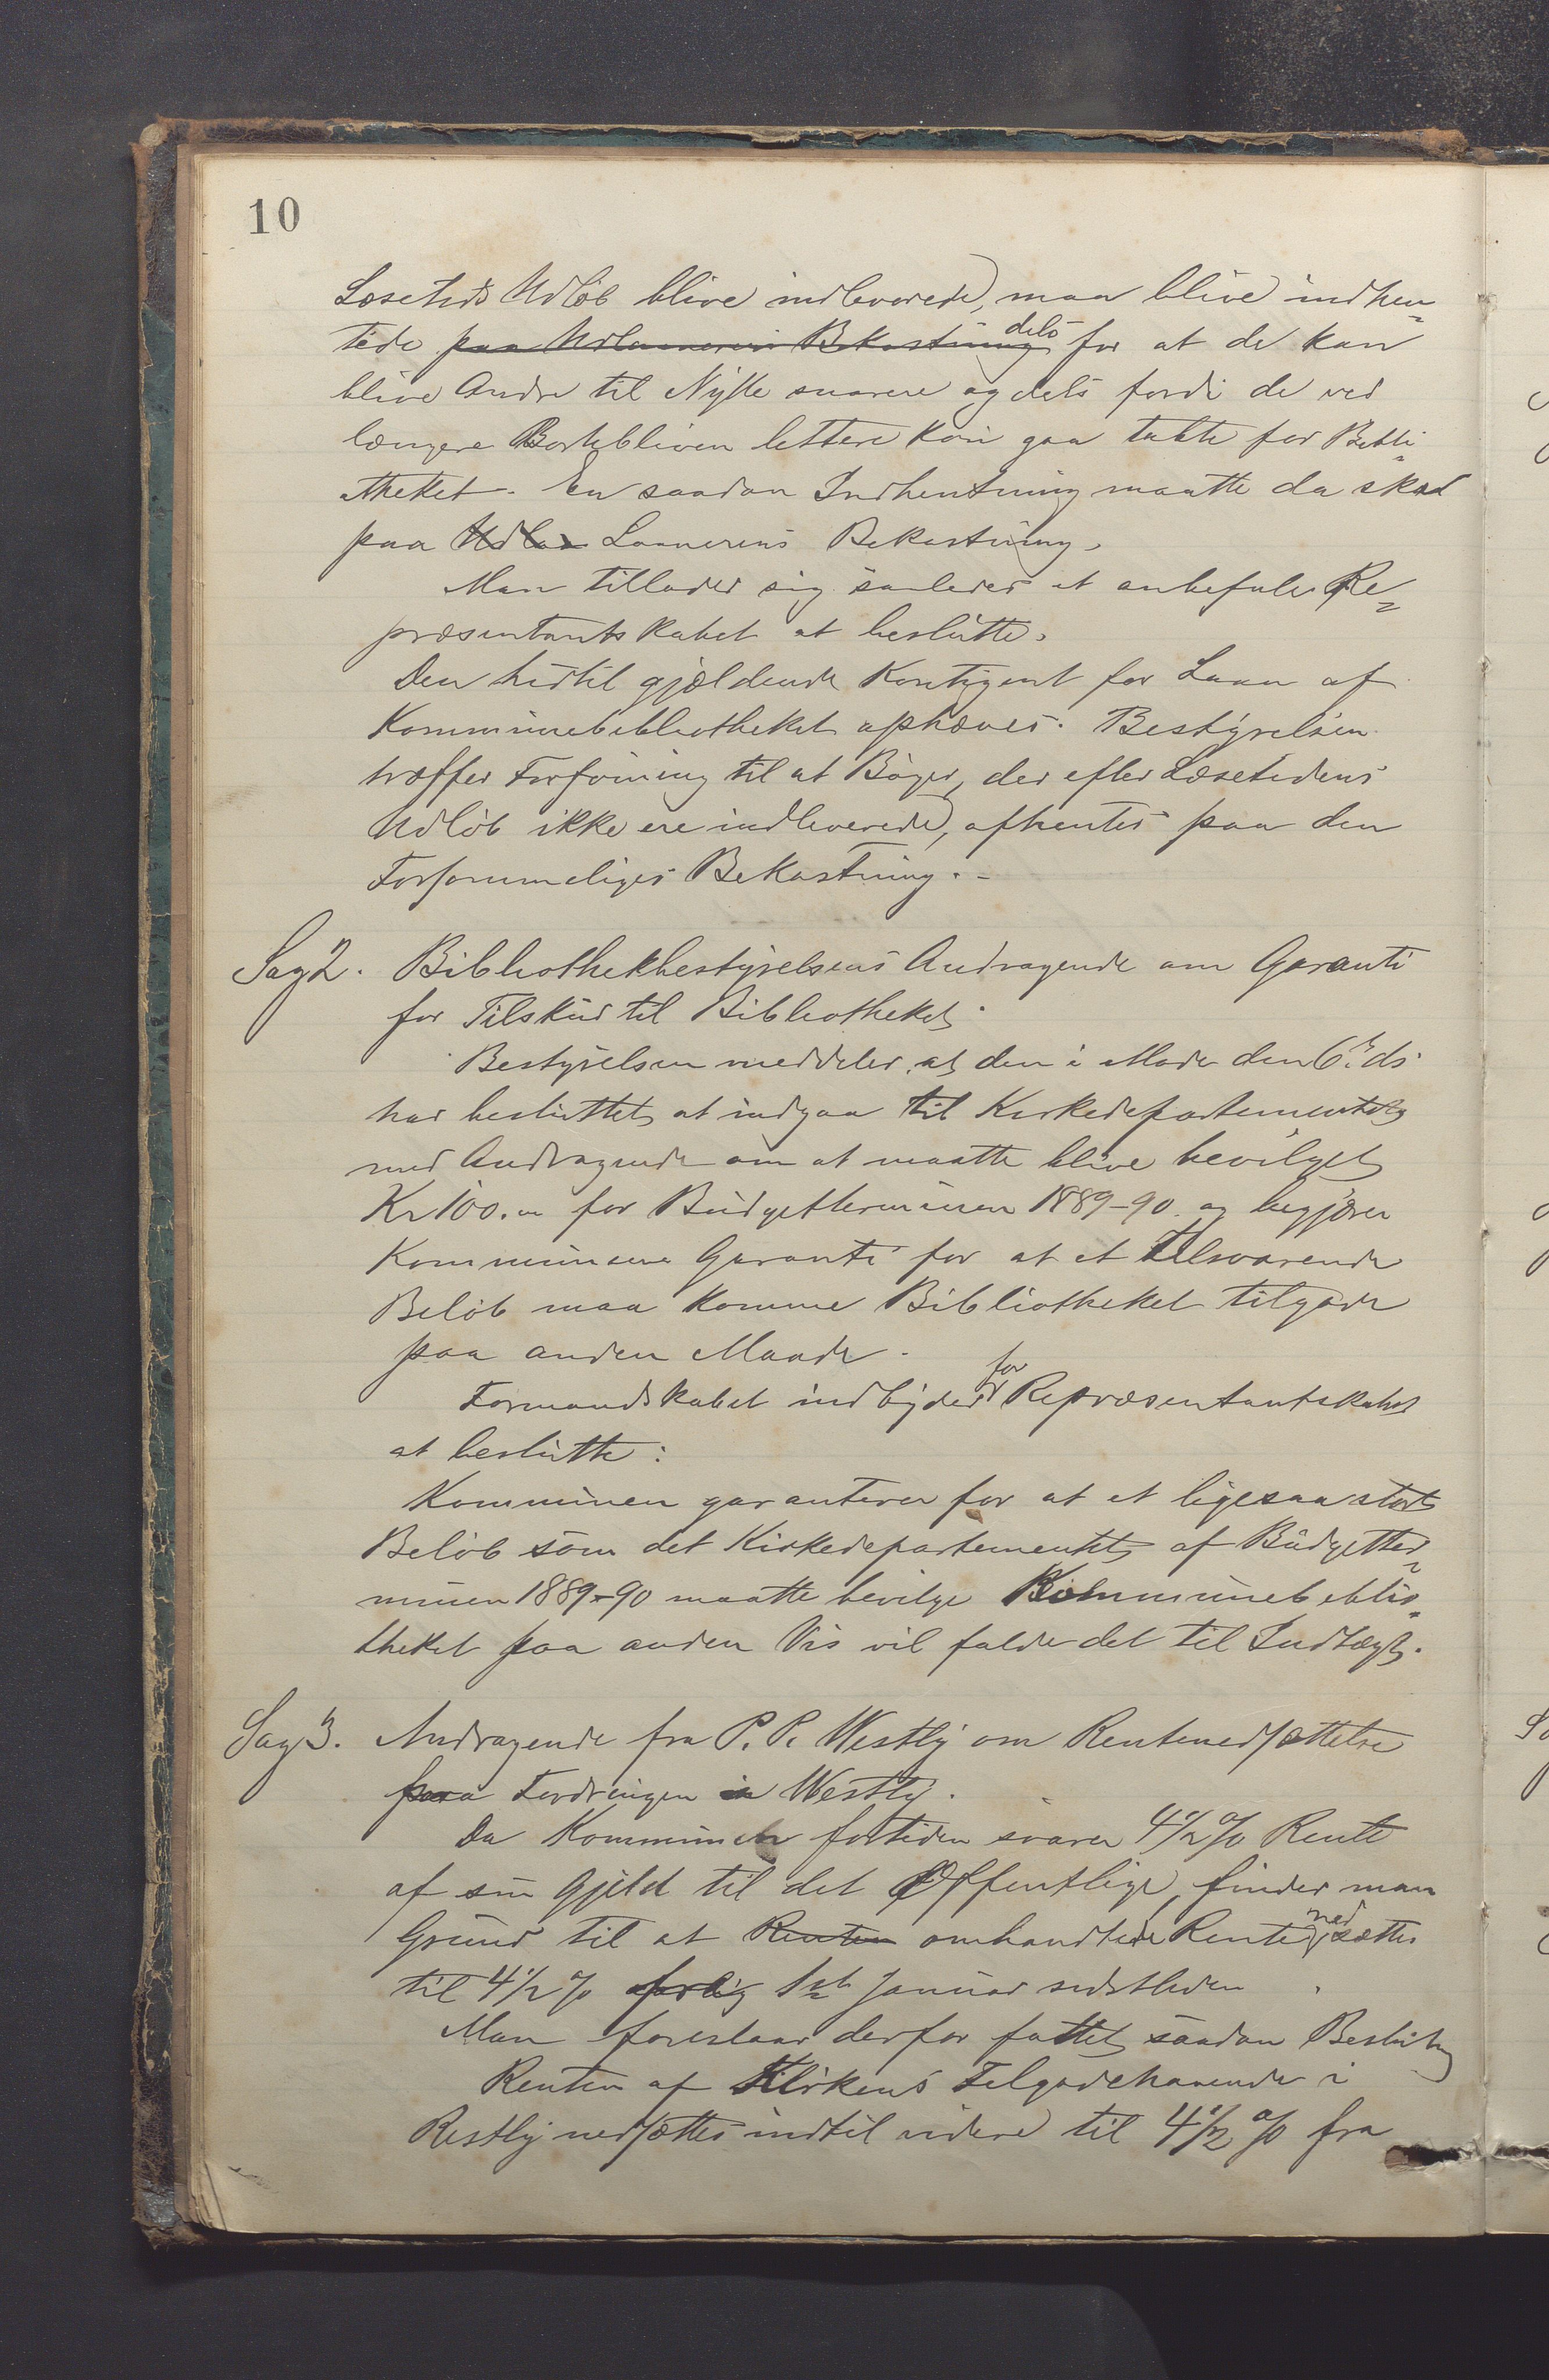 10
Læsetids Udløb blive indleverede, maa blive indhen=
tede paa Udlaanerens Bekostning dels for at de kan
blive Andre til Nytte snarere og dels fordi de ved
længere Bortebliven lettere kan gaa tabte for Bibli=
otheket. En saadan Indhentning maatte da ske
paa Laanerens Bekostning.
Man tillader sig saaledes at anbefale Re=
præsentantskabet at beslutte.
Den hidtil gjældende Kontigent for Laan af
Kommunebibliotheket ophæves. Bestyrelsen
træffer Forføining til at Bøger, der efter Læsetidens
Udløb ikke ere indleverede, afhentes paa den
Forsømmeliges Bekostning.-
Sag 2. Bibliothekbestyrelsens Andragende om Garanti
for Tilskud til Bibliotheket.
Bestyrelsen meddeler, at den i Møde den 6te ds
har besluttet at indgaa til Kirkedepartementet
med Andragende om at maatte blive bevilget
Kr 100. for Budgetterminen 1889-90 og begjærer
Kommunens Garanti for at et tilsvarende
Beløb maa komme Bibliotheket tilgode
paa anden Maade.
Formandskabet indbyder for Repræsentantskabet
at beslutte:
Kommunen garanterer for at et ligesaa stort
Beløb som det Kirkedepartementet af Budgetter=
minen 1889-90 maatte bevilge Kommunebiblio=
theket paa anden Vis vil falde det til Indtægt.
Sag 3. Andragende fra P. P. Westly om Rentenedsættelse
paa Fordringen i Westly.
Da Kommunen fortiden svarer 4 1/2 % Rente
af sin Gjeld til det Offentlige, finder man
Grund til at Renten omhandlede Rente nedsættes
til 4 1/2 % 1ste Januar sidstleden.
Man foreslaar derfor fattet saadan Beslutn
Renten af Kirkens Tilgodehavende i
Restly nedsættes indtil videre til 4 1/2 % fra